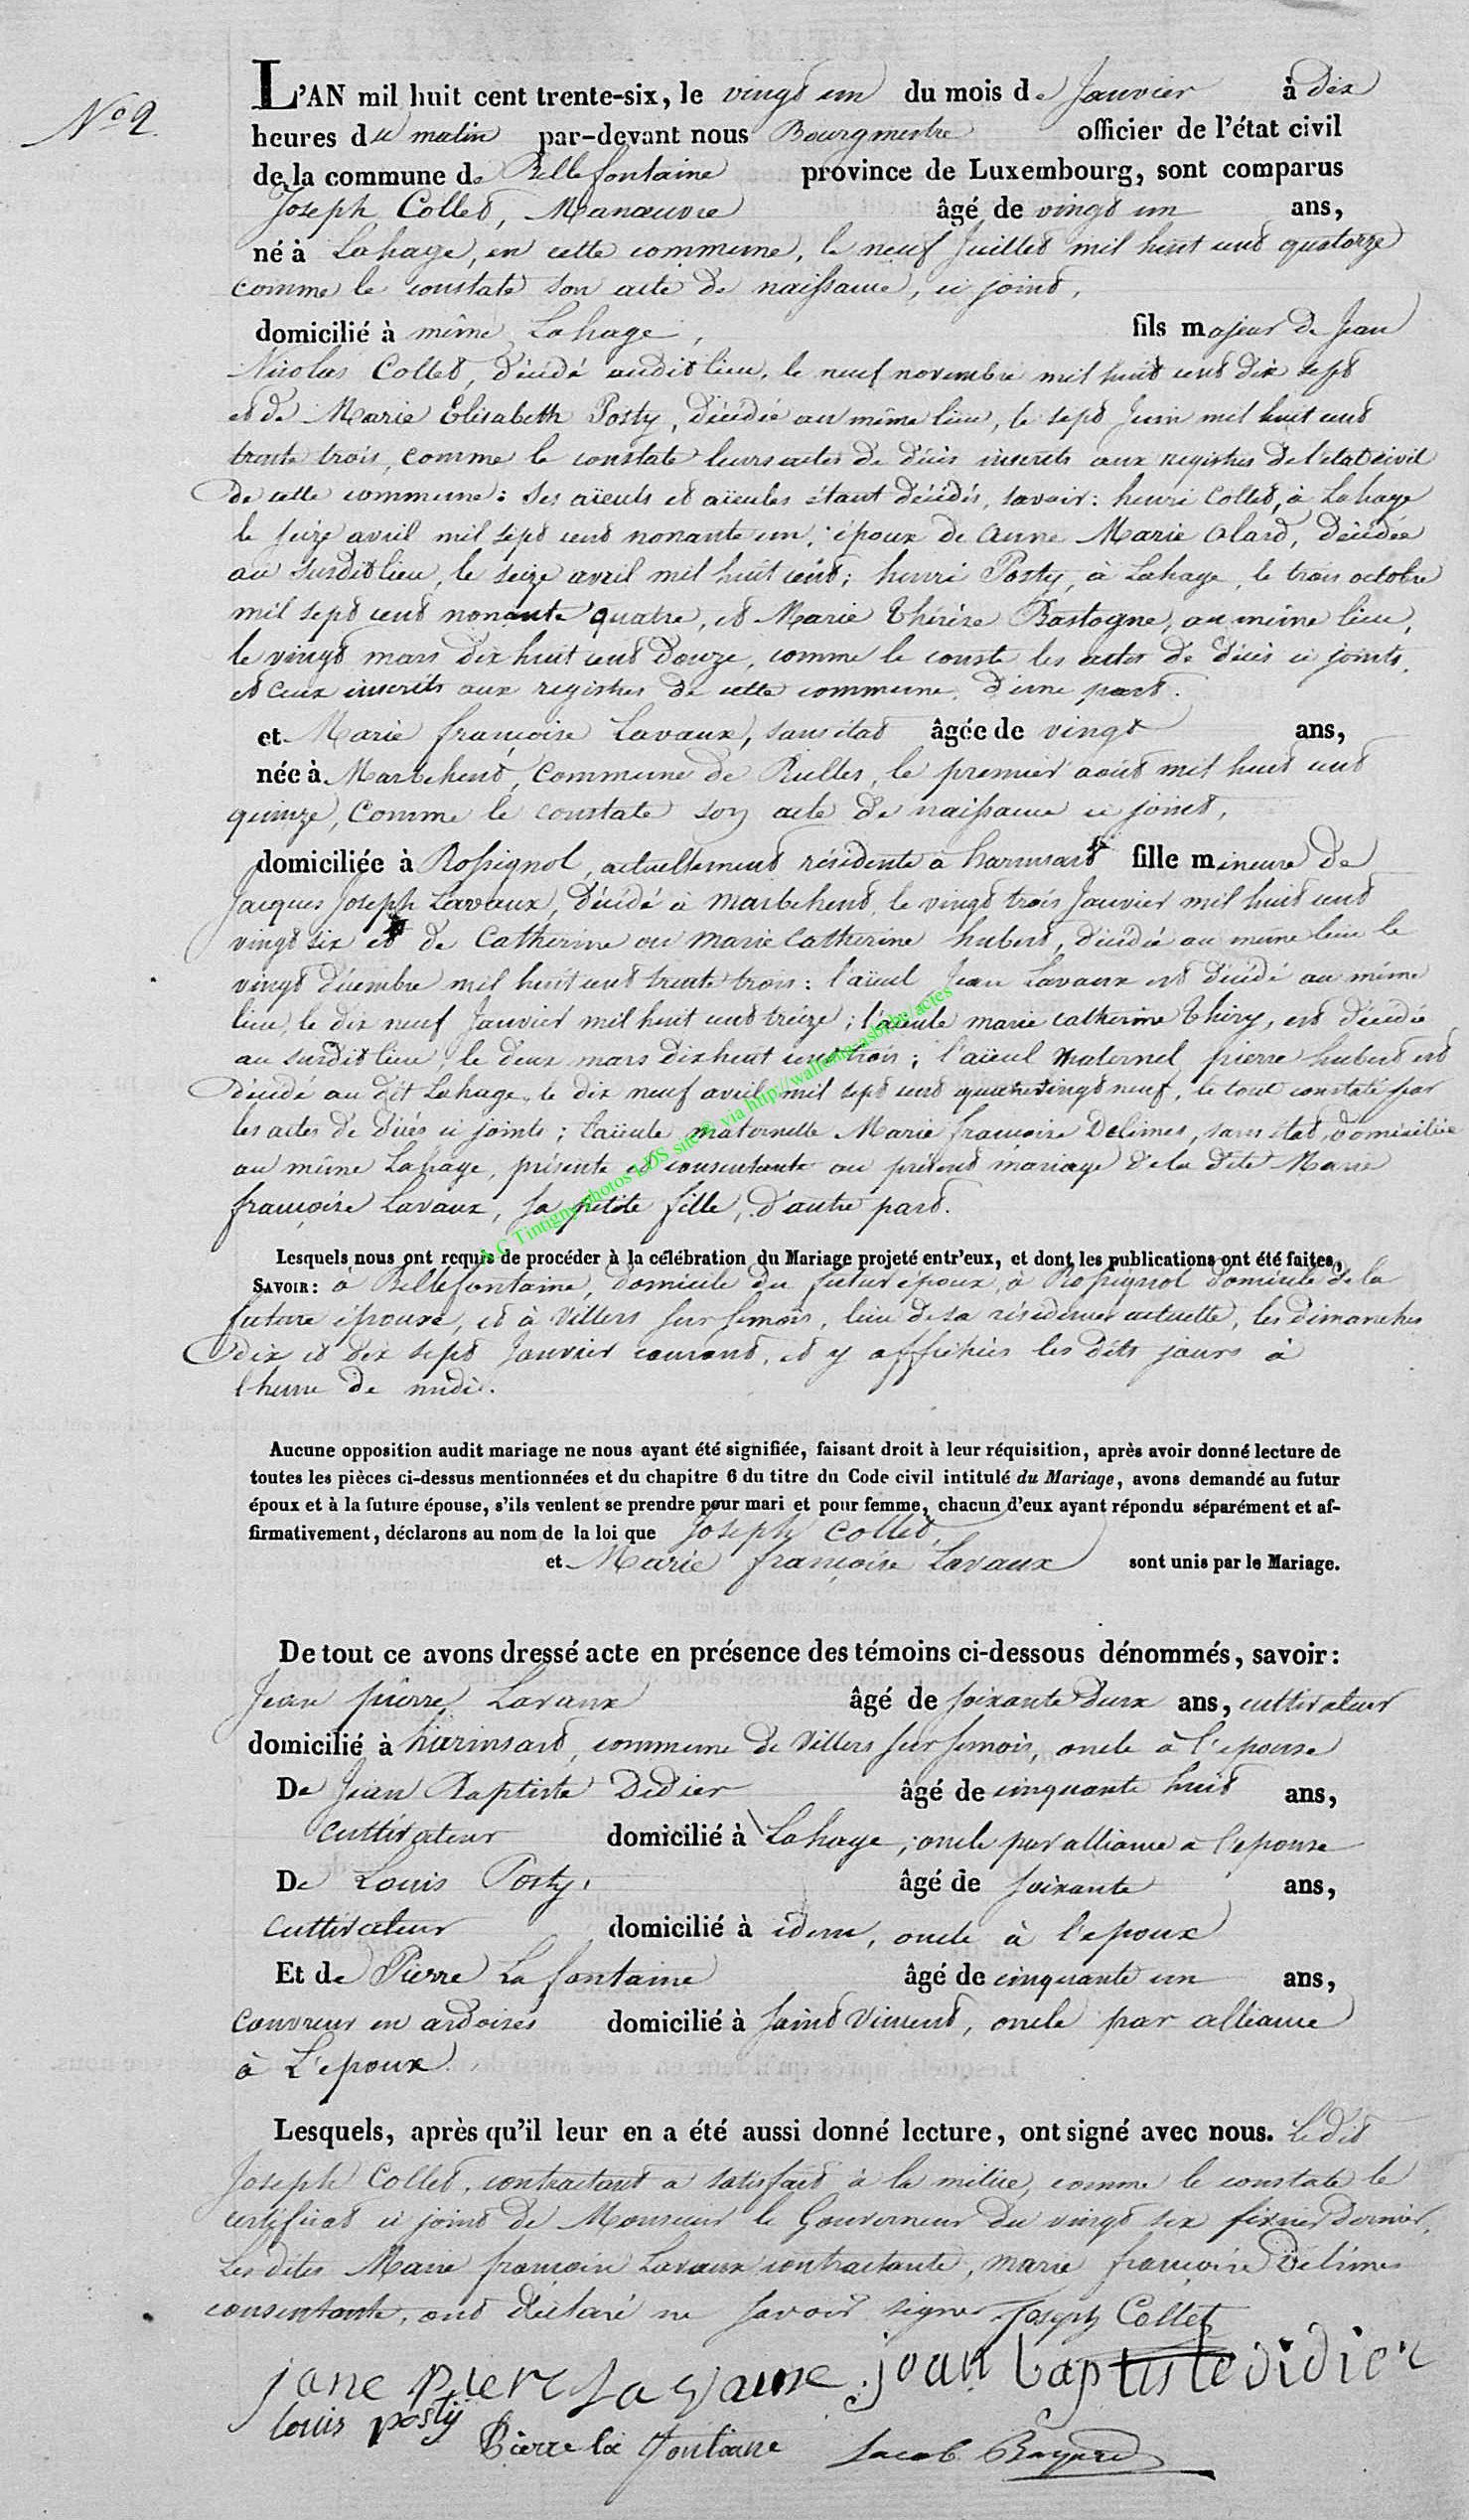 No 2.
L'AN mil huit cent trente-six, le vingt un du mois de Janvier à dix
heures du matin par-devant nous Bourgmestre officier de l'état civil
de la commune de Bellefontaine province de Luxembourg, sont comparus
Joseph Collet, Manœuvre âgé de vingt un ans,
né à Lahage, en cette commune, le neuf Juillet mil huit cent quatorze
comme le constate son acte de naissance, ci joint,
domicilié à même Lahage, fils majeur de Jean
Nicolas Collet, décédé audit lieu, le neuf novembre mil huit cent dix sept
et de Marie Elisabeth Posty, décédée au même lieu, le sept Juin mil huit cent
trente trois, comme le constate leurs actes de décès inscrits aux registres de l'etat civil
de cette commune : ses aïeuls et aïeules étant décédés, savoir : henri Collet, à Lahage
le seize avril mil sept cent nonante un, époux de Anne Marie Alard, décédée
au susdit lieu, le seize avril mil huit cent ; henri Posty, à Lahage, le trois octobre
mil sept cent nonante quatre, et Marie thérèse Bastogne, au même lieu,
le vingt mars dix huit cent douze, comme le conste les actes de décès ci joints,
et ceux inscrits aux registres de cette commune, d'une part.
et Marie françoise Lavaux, sans état âgée de vingt ans,
née à Marbehent, Commune de Rulles, le premier août mil huit cent
quinze, Comme le constate son acte de naissance ci joint,
domiciliée à Rossignol, actuellement résidente à harinsart fille mineure de
Jacques Joseph Lavaux, décédé à Marbehent, le vingt trois Janvier mil huit cent
vingt six et de Catherine ou Marie Catherine hubert, décédée au même lieu le
vingt décembre mil huit cent trente trois : l'aïeul Jean Lavaux est décédé au même
lieu, le dix neuf Janvier mil huit cent treize ; l'aïeule marie catherine thiry, est décédée
au susdit lieu, le deux mars dix huit cent trois ; l'aïeul maternel pierre hubert est
décédé au dit Lahage, le dix neuf avril mil sept cent quatre vingt neuf, le tout constaté par
les actes de décès ci joints ; l'aïeule maternelle Marie françoise Delimes, sans état, domiciliée
au même Lahage, présente et consentante au présent mariage de la dite Marie
françoise Lavaux, sa petite fille, d'autre part.
A C Tintigny photos LDS site © via http://wallonia-asbl.be/actes
Lesquels nous ont requis de procéder à la célébration du Mariage projeté entr'eux, et dont les publications ont été faites,
SAVOIR : à Bellefontaine, domicile du futur époux, à Rossignol domicile de la
future épouse, et à Villers sur semois, lieu de sa résidence actuelle, les dimanches
dix et dix sept Janvier courant, et y affichées les dits jours à
l'heure de midi.
Aucune opposition audit mariage ne nous ayant été signifiée, faisant droit à leur réquisition, après avoir donné lecture de
toutes les pièces ci-dessus mentionnées et du chapitre 6 du titre du Code civil intitulé du Mariage, avons demandé au futur
époux et à la future épouse, s'ils veulent se prendre pour mari et pour femme, chacun d'eux ayant répondu séparément et af-
firmativement, déclarons au nom de la loi que Joseph Collet,
et Marie françoise Lavaux sont unis par le Mariage.
De tout ce avons dressé acte en présence des témoins ci-dessous dénommés, savoir :
Jean pierre Lavaux âgé de soixante deux ans, cultivateur
domicilié à harinsart, commune de Villers sur semois, oncle à l'epouse
De Jean Baptiste Didier âgé de cinquante huit ans,
cultivateur domicilié à Lahage, oncle par alliance a l'epouse
De Louis Posty, âgé de soixante ans,
cultivateur domicilié à idem, oncle à l'epoux
Et de Pierre La fontaine âgé de cinquante un ans,
couvreur en ardoises domicilié à saint Vincent, oncle par alliance
à L'epoux.
Lesquels, après qu'il leur en a été aussi donné lecture, ont signé avec nous. Le dit
Joseph Collet, contractant a satisfait à la milice, comme le constate le
certificat ci joint de Monsieur le Gouverneur du vingt six février dernier,
Les dites Marie françoise Lavaux contractante, marie françoise Delimes
consentante, ont déclaré ne savoir signer Joseph Collet
jane piere Lavaux jean baptiste didier
louis posty Pierre la fontaine Jacob